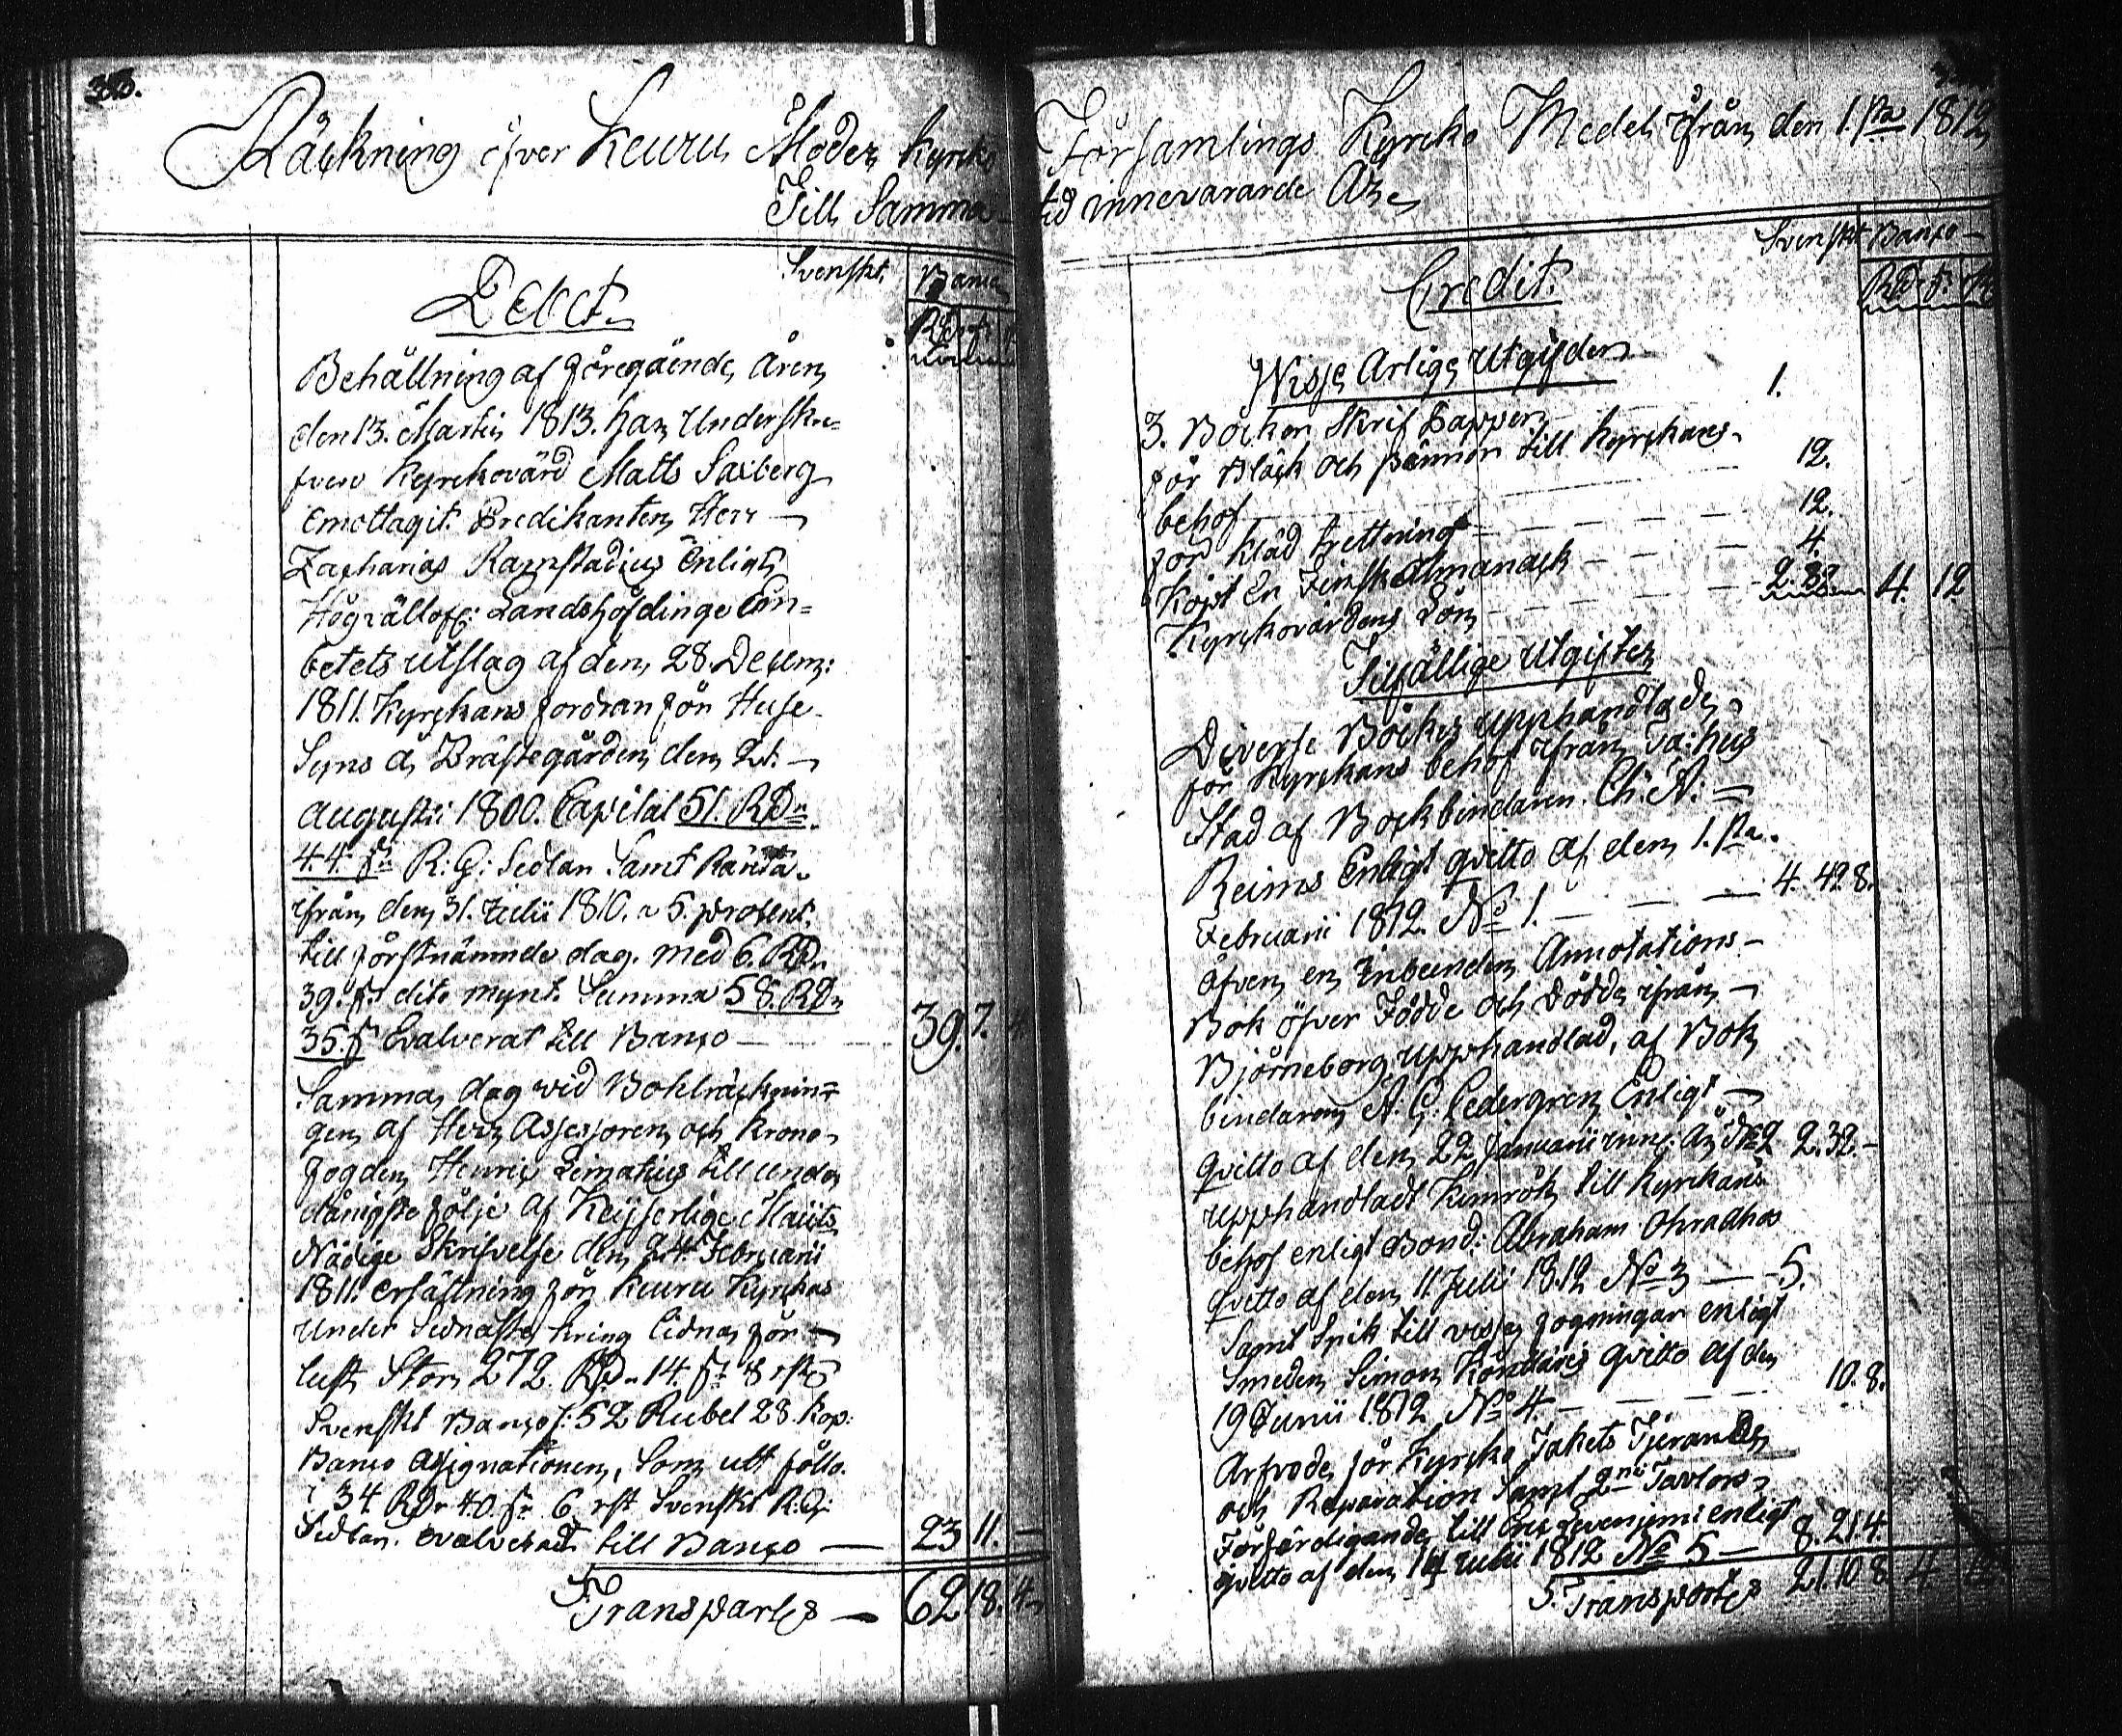 Räckning öfver Keuru Moder Kyrcko
Till Samma
Svenskt. Banco
Debet.
Behållning af föregående åren
den 13. Martii 1813. har Underskre=
fven Kyrckovärd Matts Saxberg
Emottagit. Predikanten Herr —
Zacharias Ramstadius Enligt
Högvällofl: Landshöfdinge Em=
betets utslag af den 28. Decemr:
1811. Kyrckans fordran för Huse
Syns å Prästegården den 21. —
Augusti: 1800. Capital 51. RDr
44. sk R.G: Sedlar Samt Ränta
ifrån den 31. Julii 1810. a 5. procent.
till förstnämnde dag. med 6. RDr
39. sk dito mynt. Summa 58. RDr
35. sk Evalverat till Banco — 39. 7.
Samma dag wid Bokräcknin=
gen af Herr Assessoren och Krono=
fogden Henric Limatius till under
dånigste följe af Keijserlige Maijts
Nådige Skrifvelse den 24 Februarii
1811. ersättning för Keuru Kyrckas
under Sednaste kring lidna för —
lust Stor 272. RDr 14. sk 8 rst
Svenskt Banco: 52 Rubel 28. Kop:
Banco Assignationer, Som uttföllo.
i 34 RDr 40. sk 6 rst Svenskt R:G:
Sedlar. evalverat till Banco — 23 11. —
Transporteras — 62 18. 4
Församlings Kyrcko Medel ifrån den 1. Ma 1812
tid innevarande År
Svenskt Banco
Credit.
RDr sk
Wisse Årlige Utgifter
3. Böcker Skrif Papper 1.
för Bläck och Pännor till Kyrckans
behof 12.
för Kläd tvettning 12.
Köpt En Finsk Almanack 4.
Kyrckovärdens Lön 2. 32 4. 12
Tilfällige Utgifter
Diverse Böcker upphandlade
för Kyrckans behof ifrån Tavhus
Stad af Bockbindaren Ch: A: —
Reims Enligt qvitto af den 1. Ma
Februarii 1812. No 1. — 4. 42. 8.
äfven en Inbunden Annotations —
Bok öfver Födde och Dödde ifrån —
Björneborg upphandlad, af Bok
bindaren A: G: Cedergren Enligt —
qvitto af den 22 Januarii inne: År No 2 2. 32. —
Upphandladt Kimrök till Kyrckans
behof enligt Bond: Abraham Ohraahos
qvitto af den 11 Julii 1812 No 3 — 5.
Samt Spik till visse fogningar enligt
Smeden Simon Konttaris qvitto af den
19 Junii 1812 No 4 — 10. 8.
Arfvode för Kyrcko Takets Tjärande
och Reparation Samt 2ne Tavlors
Förfärdigande till enligt
qvitto af den 14 Julii 1812 No 5 — 8. 21. 4.
Transporteras 21. 10 8 4 12